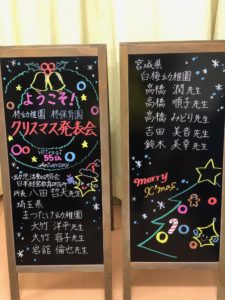 ようこそ!
柊幼稚園 柊保育園
クリスマス発表会
55th
Anniversary
幼児活動研究会
日本経営教育研究所
所長 八田哲夫先生
埼玉県
まつたけ幼稚園
大竹 洋平先生
大竹 容子先生
岩舘 倫也先生
宮城県
白梅幼稚園
高橋 潤先生
高橋 順子先生
高橋 みどり先生
吉田 美香先生
鈴木 美幸先生
merry
X'mas